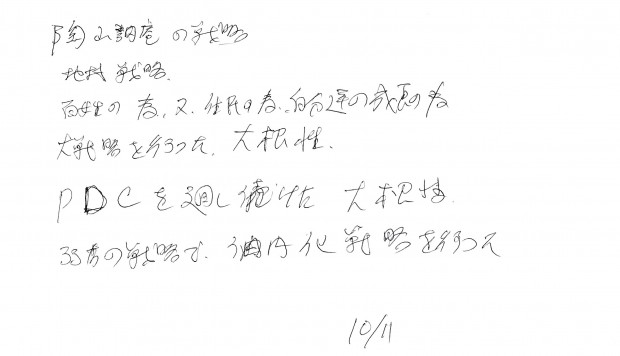 陶山訥庵の戦略
地域戦略
百姓の為、又、住民の為、自分達の成長の為
大戦略を行った、大根性、
PDCを廻し続けた 大根性
33才の戦略で、 化戦略を行った
10/11